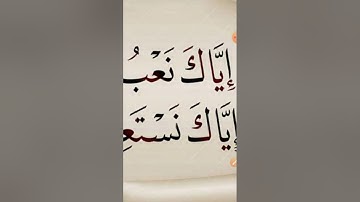 إِيَّاكَ نَعْبُ
إِيَّاكَ نَسْتَعِ